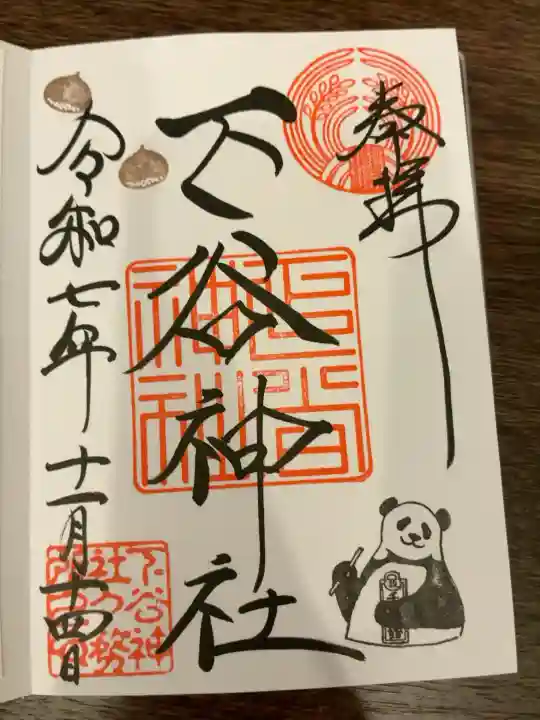 奉拝
下谷神社
令和七年十一月十四日
下谷神社
下谷神社社務所印